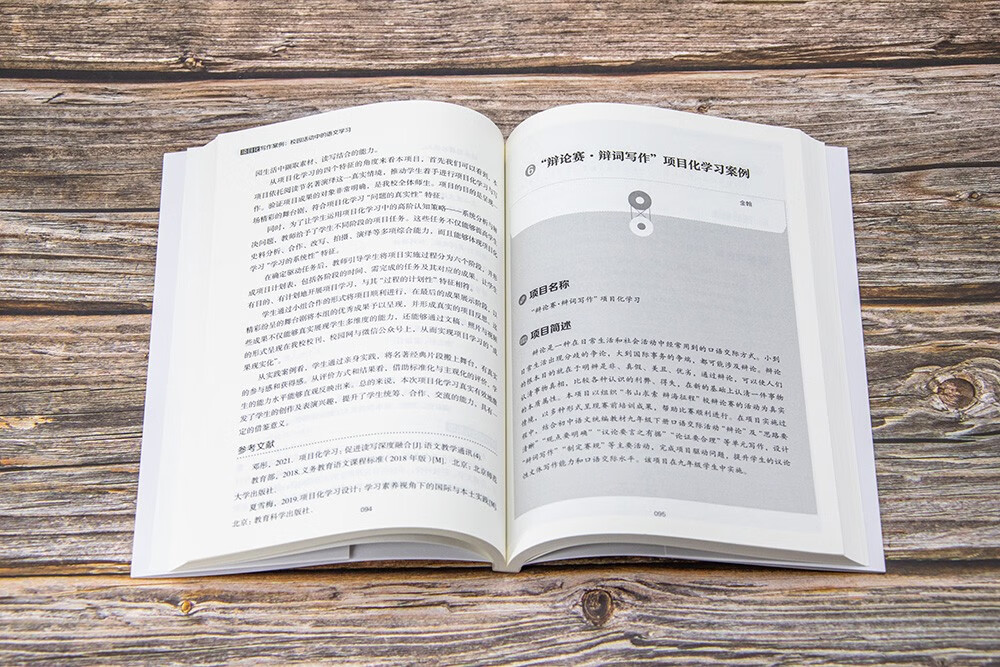 项目化写作案例：校园活动中的语文学习
园生活中撷取素材、读写结合的能力。
从项目化学习的四个特征的角度来看本项目，首先我们可以看到，本
项目依托阅读节名著演绎这一真实情境，推动学生着手进行项目化学习与写
作。验证项目成果的对象非常明确，是我校全体师生。项目的目的是呈现一
场精彩的舞台剧，符合项目化学习“问题的真实性”特征。
同时，为了让学生运用项目化学习中的高阶认知策略——系统分析与解
决问题，教师给予了学生不同阶段的项目任务。这些任务不仅能够提高学生
史料分析、合作、改写、拍摄、演绎等多项综合能力，而且能够体现项目化
学习“学习的系统性”特征。
在确定驱动任务后，教师引导学生将项目实施过程分为六个阶段，并形
成项目计划表，包括各阶段的时间、需完成的任务及其对应的成果，让学生
有目的、有计划地开展项目学习，与其“过程的计划性”特征相符。
学生通过小组合作的形式将项目顺利进行，在最后的成果展示阶段，以
精彩纷呈的舞台剧将本组的优秀成果予以呈现，并形成真实的项目反思。这
些成果不仅能够真实展现学生多维度的能力，还能够通过文稿、照片与视频
的形式呈现在我校校刊、校园网与微信公众号上，从而实现项目学习的“成
果现实化”。
从实践案例看，学生通过亲身实践，将名著经典片段搬上舞台，有真实
的参与感和获得感。从评价方式和结果看，借助标准化与主观化的评价，学
生的能力水平能够直观反映出来。总的来说，本次项目化学习真实有效地激
发了学生的创作及表演兴趣，提升了学生统筹、合作、交流的能力，具有一
定的借鉴意义。
参考文献
邓彤，2021．项目化学习：促进读写深度融合[J].语文教学通讯(4).
教育部，2018.义务教育语文课程标准（2018年版）[M]．北京：北京师范
大学出版社．
夏雪梅，2019.项目化学习设计：学习素养视角下的国际与本土实践[M].
北京：教育科学出版社．
094
6 “辩论赛·辩词写作”项目化学习案例
金赖
项目名称
“辩论赛·辩词写作”项目化学习
项目简述
辩论是一种在日常生活和社会活动中经常用到的口语交际方式。小到
日常生活出现分歧的争论，大到国际事务的争端，都可能涉及辩论。辩论
的根本目的就在于明辨是非、真假、美丑、优劣，通过辩论，可以使人们
认清事物真相，比较各种认识的利弊、得失，在新的基础上认清一件事物
的本质属性。本项目以组织“书山求索 辩海征程”校辩论赛的活动为真实
情境，以多种形式呈现赛前培训成果，帮助比赛顺利进行。在项目实施过
程中，结合初中语文统编教材九年级下册口语交际活动“辩论”及“思路要
清晰”“观点要明确”“议论要言之有据”“论证要合理”等单元写作，设计
“辩词写作”“制定赛规”等主要活动，完成项目驱动问题，提升学生的议论
性文体写作能力和口语交际水平。该项目在九年级学生中实施。
095